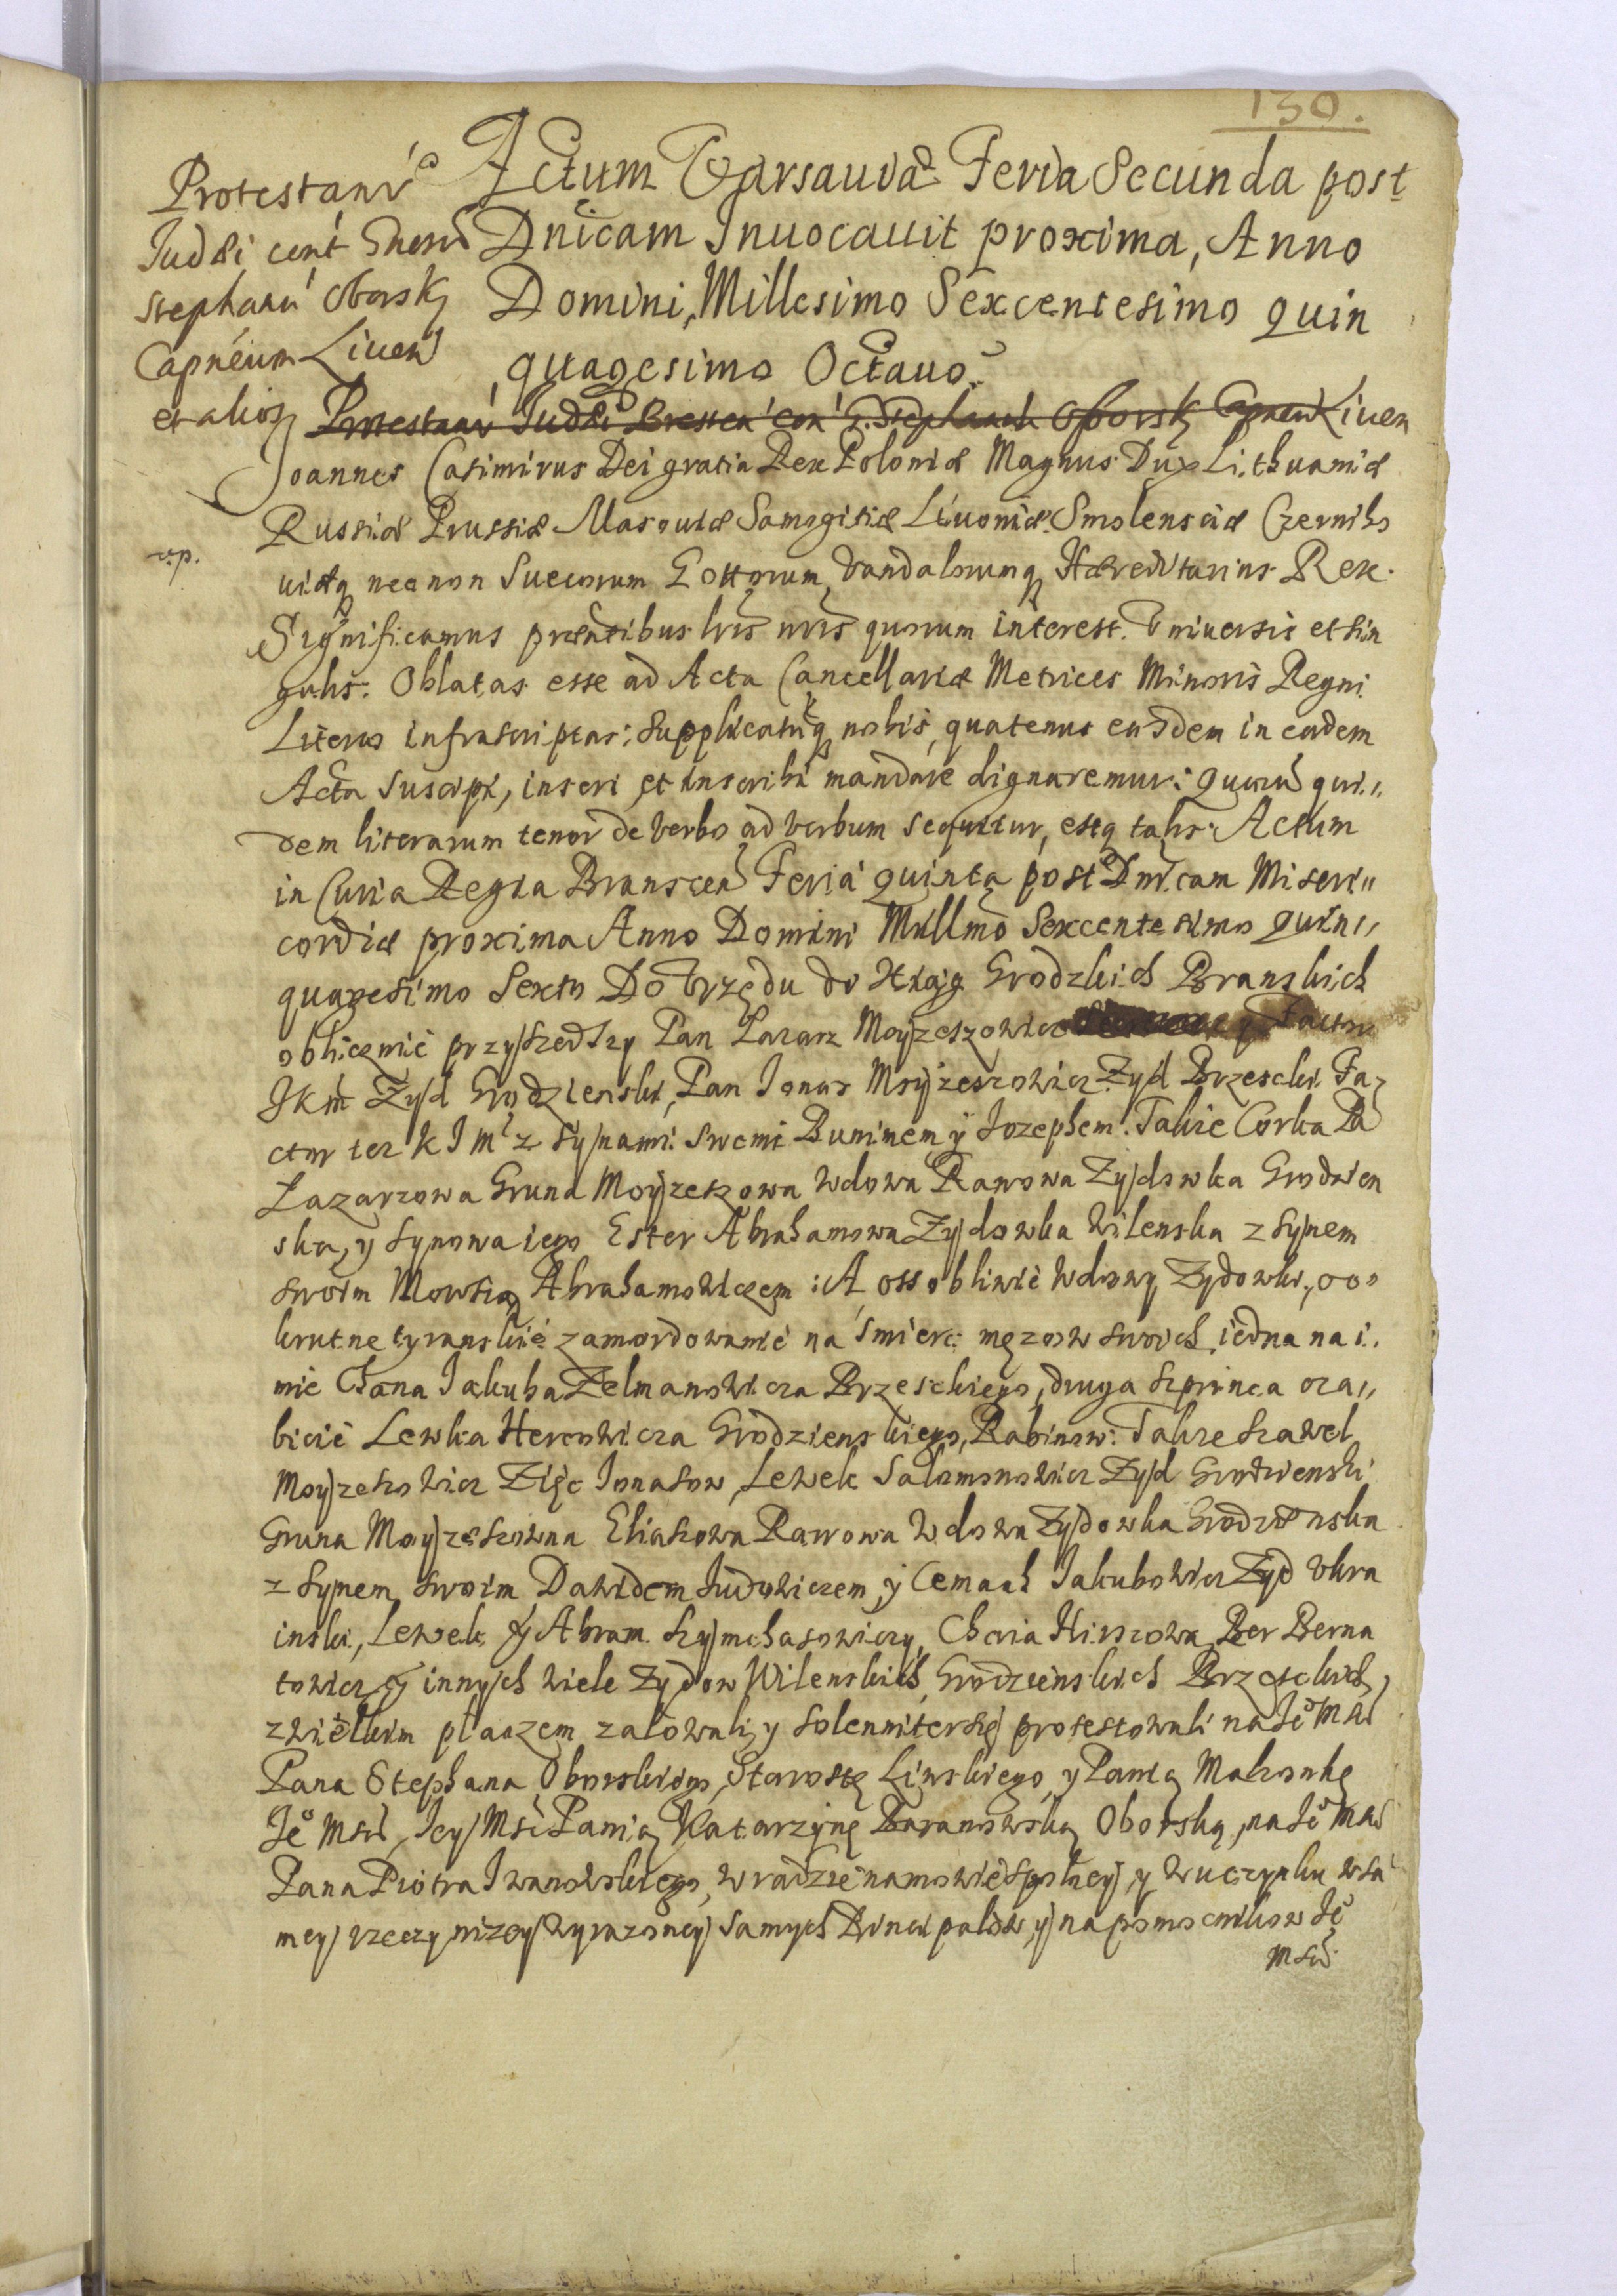 130.
Protestanr
Judæi cont Gnosum
Stephanu Oborsky
Capneum Liuen
et alios
Actum Varsauiæ Feria Secunda post
Dnicam Inuocauit proxima, Anno
Domini, Millesimo Sexcentesimo quin
quagesimo Octauo.
Protestanr Judæi Bresten con G. Stephanu Oborsky Capneu Liuen
Joannes Casimirus Dei gratia Rex Poloniæ Magnus Dux Lithuaniæ
Russiæ Prussiæ Masouiæ Samogitiæ Liuoniæ Smolensciæ Czerniho
uiæq necnon Suecorum Gottorum, Vandalorumq Hæreditarius Rex.
Significamus præntibus lris nris quorum interest. Vniuersis et sin
gulis. Oblatas esse ad Acta Cancellariæ Metrices Minoris Regni
Literas infrascriptas: supplicatuq nobis, quatenus easdem in eadem
Acta suscipi, inseri et inscribi mandare dignaremur: quaru qui„
dem literarum tenor de verbo ad verbum sequitur, estq talis. Actum
in Curia Regia Branscen Feria quinta post Dnicam Miseri„
cordiæ proxima Anno Domini Millmo Sexcentesimo quin„
quagesimo Sexto Do Vrzędu do Xiąg Grodzkich Branskich
oblicznie przyszedszy Pan Lazarz Moyzeszowicz
JKM Zyd Grodzienski, Pan Jonas Moyzeszowicz Zyd Brzescki Fa
ctor tez K J Mci z synami swemi Buninem y Jozephem. Takze Corka Pa
Lazarzowa Gruna Moyzeszowa Wdowa Rawowa Zydowka Grodzien
ska, y synowa iego Ester Abrahamowa Zydowka Wilenska z synem
swoim Mowszą Abrahamowiczem: A ossobliwie wdowy Zydowki, o o„
krutne tyranskie zamordowanie na smierc męzow swoich iedna na i„
mie Chana Jakuba Zelmanowicza Brzesckiego, druga Szprinca oza„
bicie Lewka Hercowicza Grodzienskiego, Rabinow. Takze Szawel
Moyzeszowicz Zięc Jonasow, Lewek Salomonowicz Zyd Grodzienski
Gruna Moyzeszowna Eliaszowa Rawowa Wdowa Zydowka Grodzienska
z synem swoim Dawidem Judowiczem, y Cemach Jakubowicz Zyd Vkra
inski, Lewek y Abram Szymchasowiczy, Chaia Hirszowa, Ber Berna
towicz y innych wiele Zydow Wilenskich, Grodzienskich Brzesckich,
z wielkim płaczem załowali y solenniter się protestowali na Je Msci
Pana Stephana Oborskiego, Starostę Liwskiego y Panią Małzonkę
Je Msci, Jey Msci Panią Katarzynę Baranowską Oborską, na Je Msci
Pana Piotra Iwanowskiego, w radzie namowie spolney, y w uczynku w sa
mey rzeczy nizey wyrazoney samych Principalow, y na pomocnikow Je
Msci